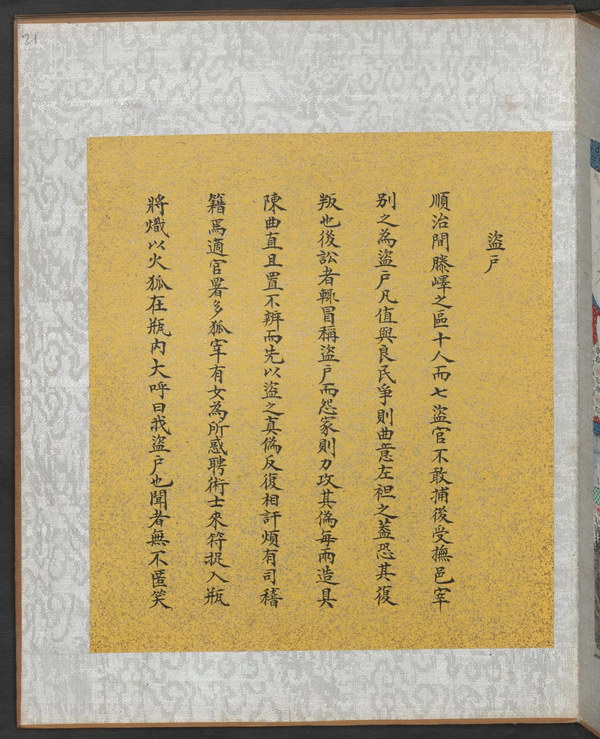 21
盜户
順治間滕嶧之區十人而七盜官不敢捕後受撫邑宰
別之為盜户凡值與良民爭則曲意左袒之蓋恐其復
叛也後訟者輒冒稱盜户而怨家則力攻其偽每兩造具
陳曲直且置不辨而先以盜之真偽反復相訐煩有司稽
籍焉適官署多狐宰有女為所惑聘術士來符捉入瓶
將熾以火狐在瓶內大呼曰我盜户也聞者無不匿笑